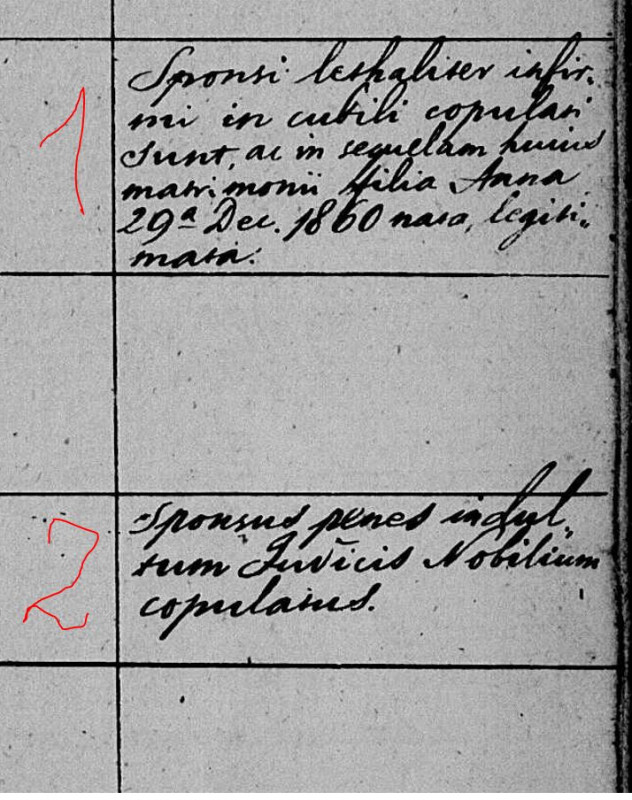 1
Sponsi lethaliter infir-
mi in cubili copulati
sunt, ac in sequelam huius
matrimonii filia Anna
29ª Dec. 1860 nata, legiti-
mata.
2
Sponsus penes indul-
tum Judicis Nobilium
copulatus.